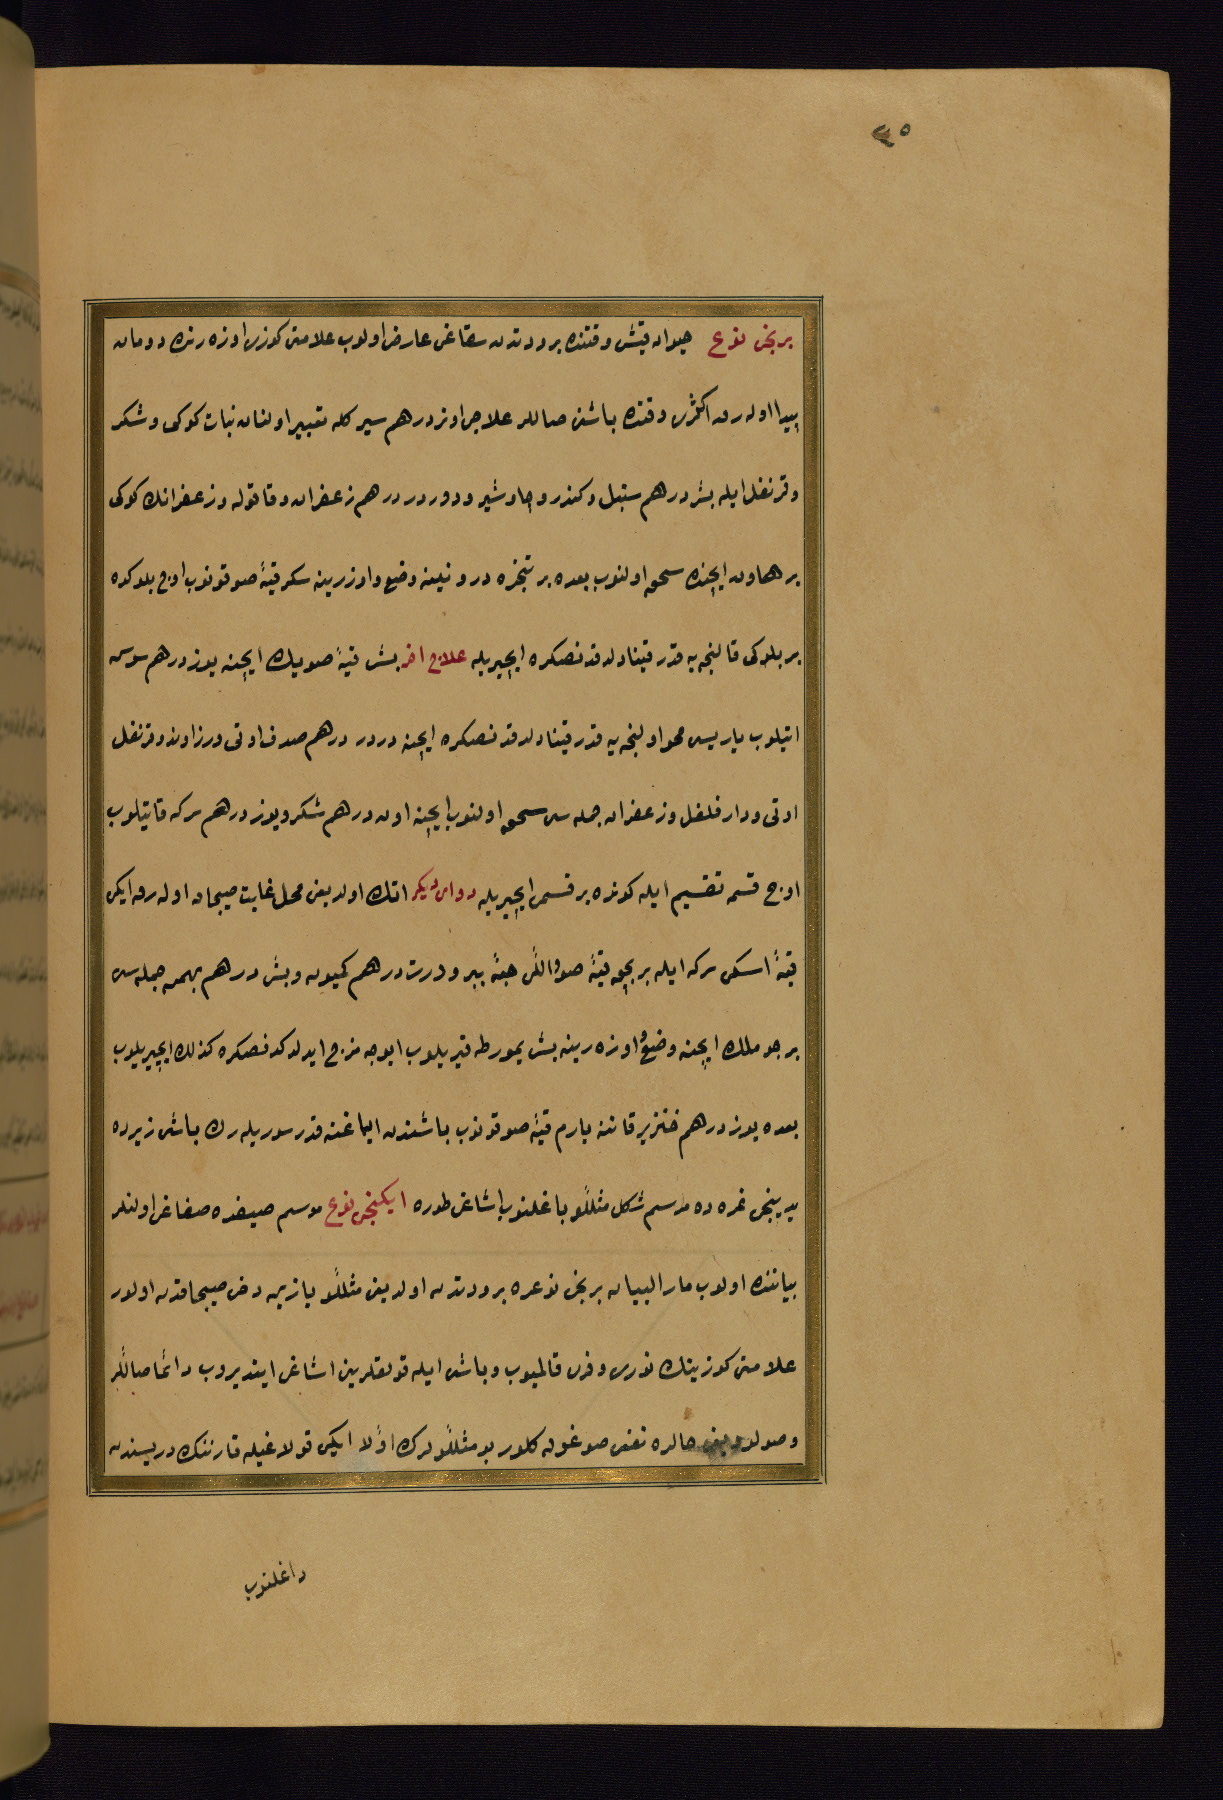 ٤٥
برنجی نوع حیوان قیش وقتنده برودتدن سقاغی عارض اولوب علامتی کوزی اوزەرنده دومان
پیدا اولەرق اکثری وقتده باشنی صاللر علاجی اوتز درهم سیر کله تعبیر اولنان نبات کوکی وشکر
وقرنفل ایله بش درهم سنبل وکندر وجاوشیر ودوردر درهم زعفران وقاقوله وزعفرانك کوکی
بر هاون ایچنده سحق اولنوب بعده بر تنجره دروننه وضع واوزرینه سکز قیه صو قونوب اوچ بلوکده
بر بلوکی قالنجه‌یه قدر قیناد‌لدقدنصکره ایچیریله علاج اخر بش قیه صویك ایچنه یوز درهم سوس
اتیلوب یاریسی محو اولنجه‌یه قدر قینادلدقدنصکره ایچنه دردر درهم صدف اوتی وزراوند وقرنفل
اوتی ودارفلفل وزعفران جمله‌سی سحق اولنوب ایچنه اون درهم شکر ویوز درهم سرکه قاتیلوب
اوچ قسمه تقسیم ایله کونده بر قسمی ایچیریله دوای دیکر اتك اولدیغی محل غایت صیجاق اولەرق ایکی
قیه اسکی سرکه ایله بر بچق قیه صو واللی حبه بیبر ودرت درهم کمیون وبش درهم بهمن جمله‌سی
بر چوملك ایچنه وضع واوزەرینه بش یمورطه قیریلوب ایوجه مزج ایدلدکدنصکره کذلك ایچیریلوب
بعده یوز درهم خنزیر قاننه یارم قیه صو قونوب باشندن ایاغنه قدر سوریله‌رك باشی زیرده
یدینجی نمره‌ده مرسم شکل مثللو باغلنوب اشاغی طوره ایکنجی نوع موسم صیفده صقاغی اولنلر
بیاننده اولوب مار البیان برنجی نوعده برودتدن اولدیغی مثللو یازین دخی صیجاقدن اولور
علامتی کوزینك نوری وفری قالمیوب وباشی ایله قولقلرینی اشاغی ایندیروب دائما صاللر
وصولودیغی حالده نفسی صوغوق کلور بو مثللولرك اولا ایکی قولاغیله قارننك دریسندن
داغلنوب